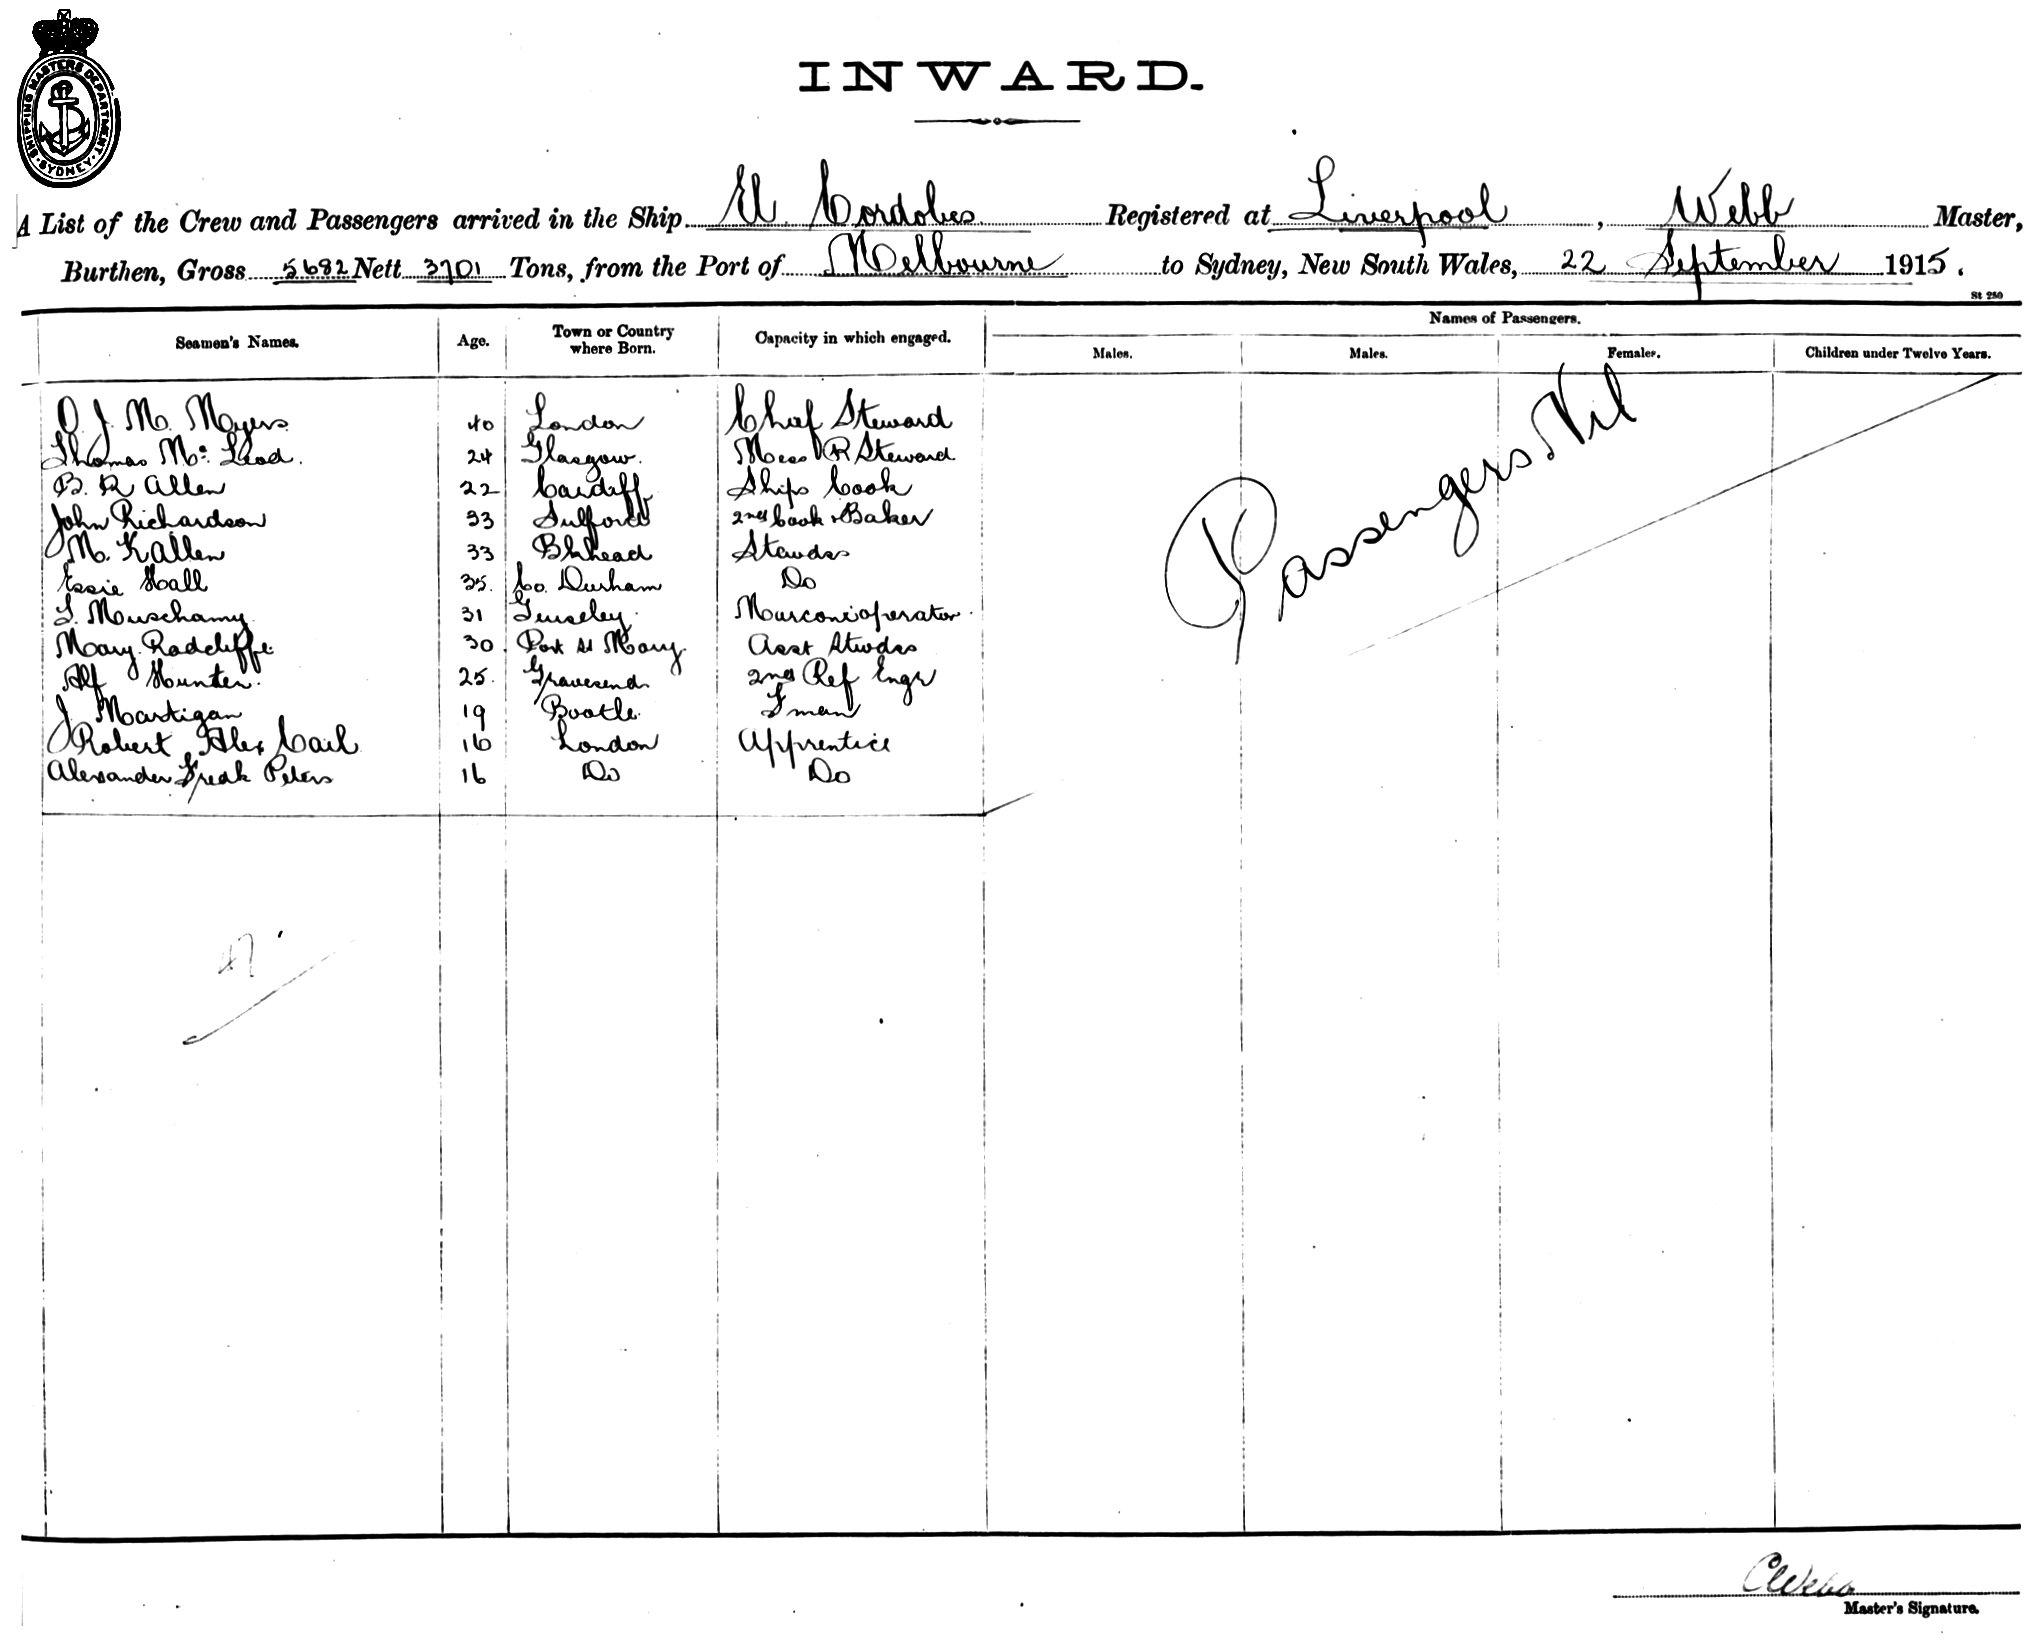 SHIPPING MASTERS DEPARTMENT · SYDNEY ·
INWARD.
A List of the Crew and Passengers arrived in the Ship El Cordobes Registered at Liverpool, Webb Master,
Burthen, Gross 5682 Nett 3701 Tons, from the Port of Melbourne to Sydney, New South Wales, 22 September 1915.
St 250
Names of Passengers.
Seamen's Names. Age. Town or Country where Born. Capacity in which engaged. Males. Males. Females. Children under Twelve Years.
Passengers Nil
O. J. M. Myers 40 London Chief Steward
Thomas Mc Leod. 24 Glasgow. Mess R Steward
B. R Allen 22 Cardiff Ships Cook
John Richardson 33 Salford 2nd Cook & Baker
M. K Allen 33 Bkhead Stewdss
Essie Hall 35. Co. Durham Do
Muschamp 31 Guiseley. Marconi operator.
Mary Radcliffe. 30. Port St Mary. Asst Stwdss
Alf Hunter. 25. Gravesend. 2nd Ref Engr
J Martigan 19 Bootle. Fman
Robert Alex Cail 16 London Apprentice
Alexander Fredk Peters 16 Do Do
47
CWebb
Master's Signature.